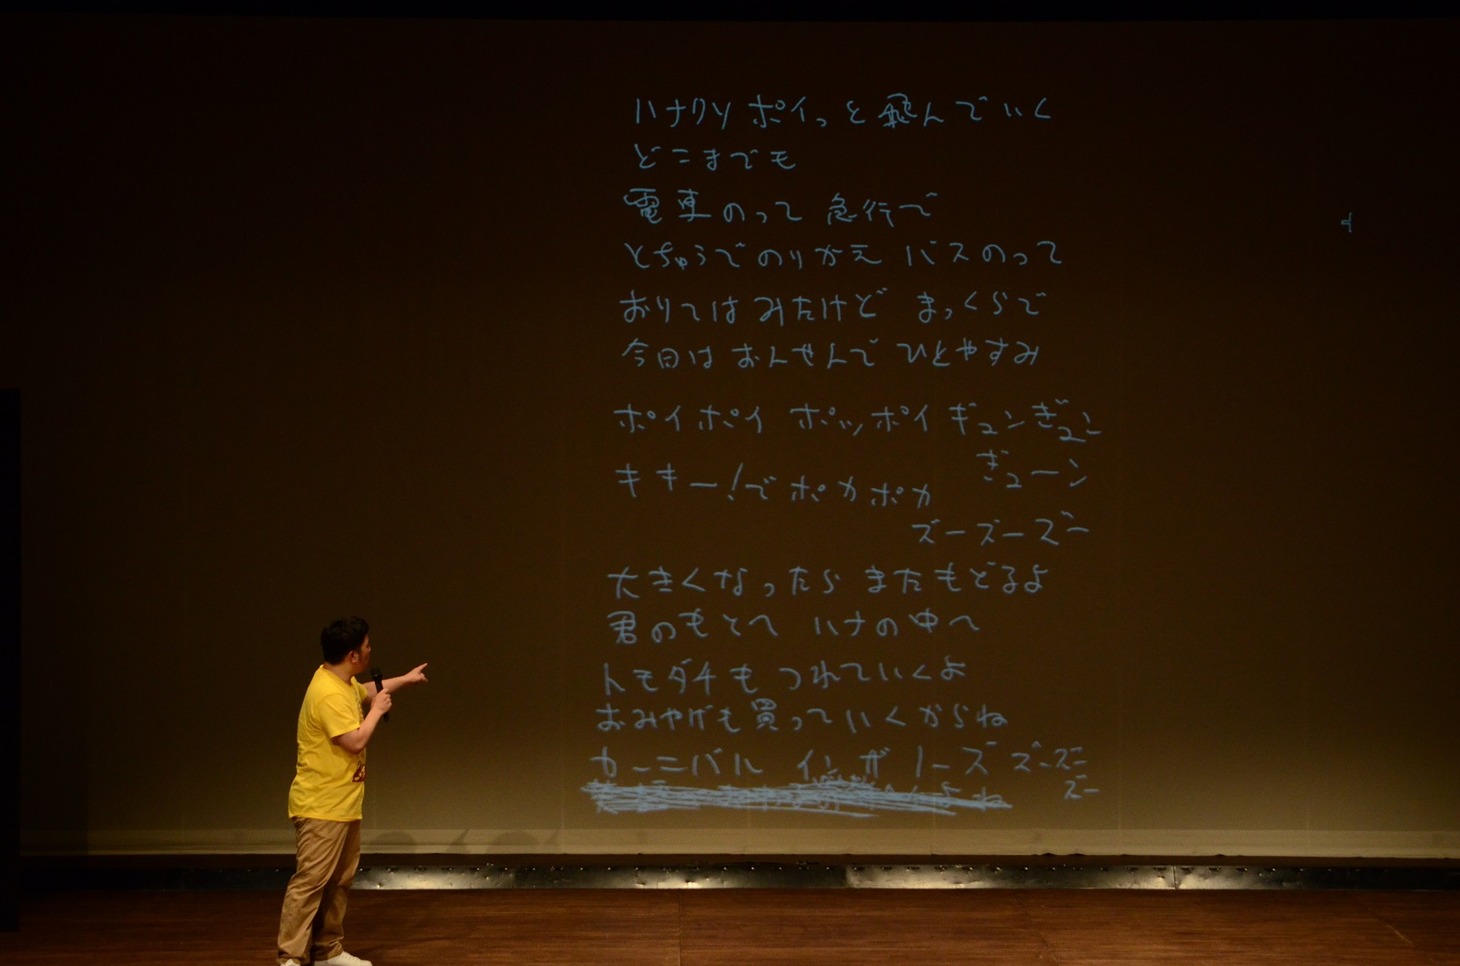 ハナクソ ポイっと飛んでいく
どこまでも
電車のって 急行で
とちゅうでのりかえ バスのって
おりてはみたけど まっくらで
今日は おんせんで ひとやすみ
ポイポイ ポッポイ ギュンぎュン
ぎューン
キキー!でポカポカ
ズーズーズー
大きくなったら またもどるよ
君のもとへ ハナの中へ
トモダチも つれていくよ
おみやげも買っていくからね
カーニバル インザ ノーズ ズーズー
ズー